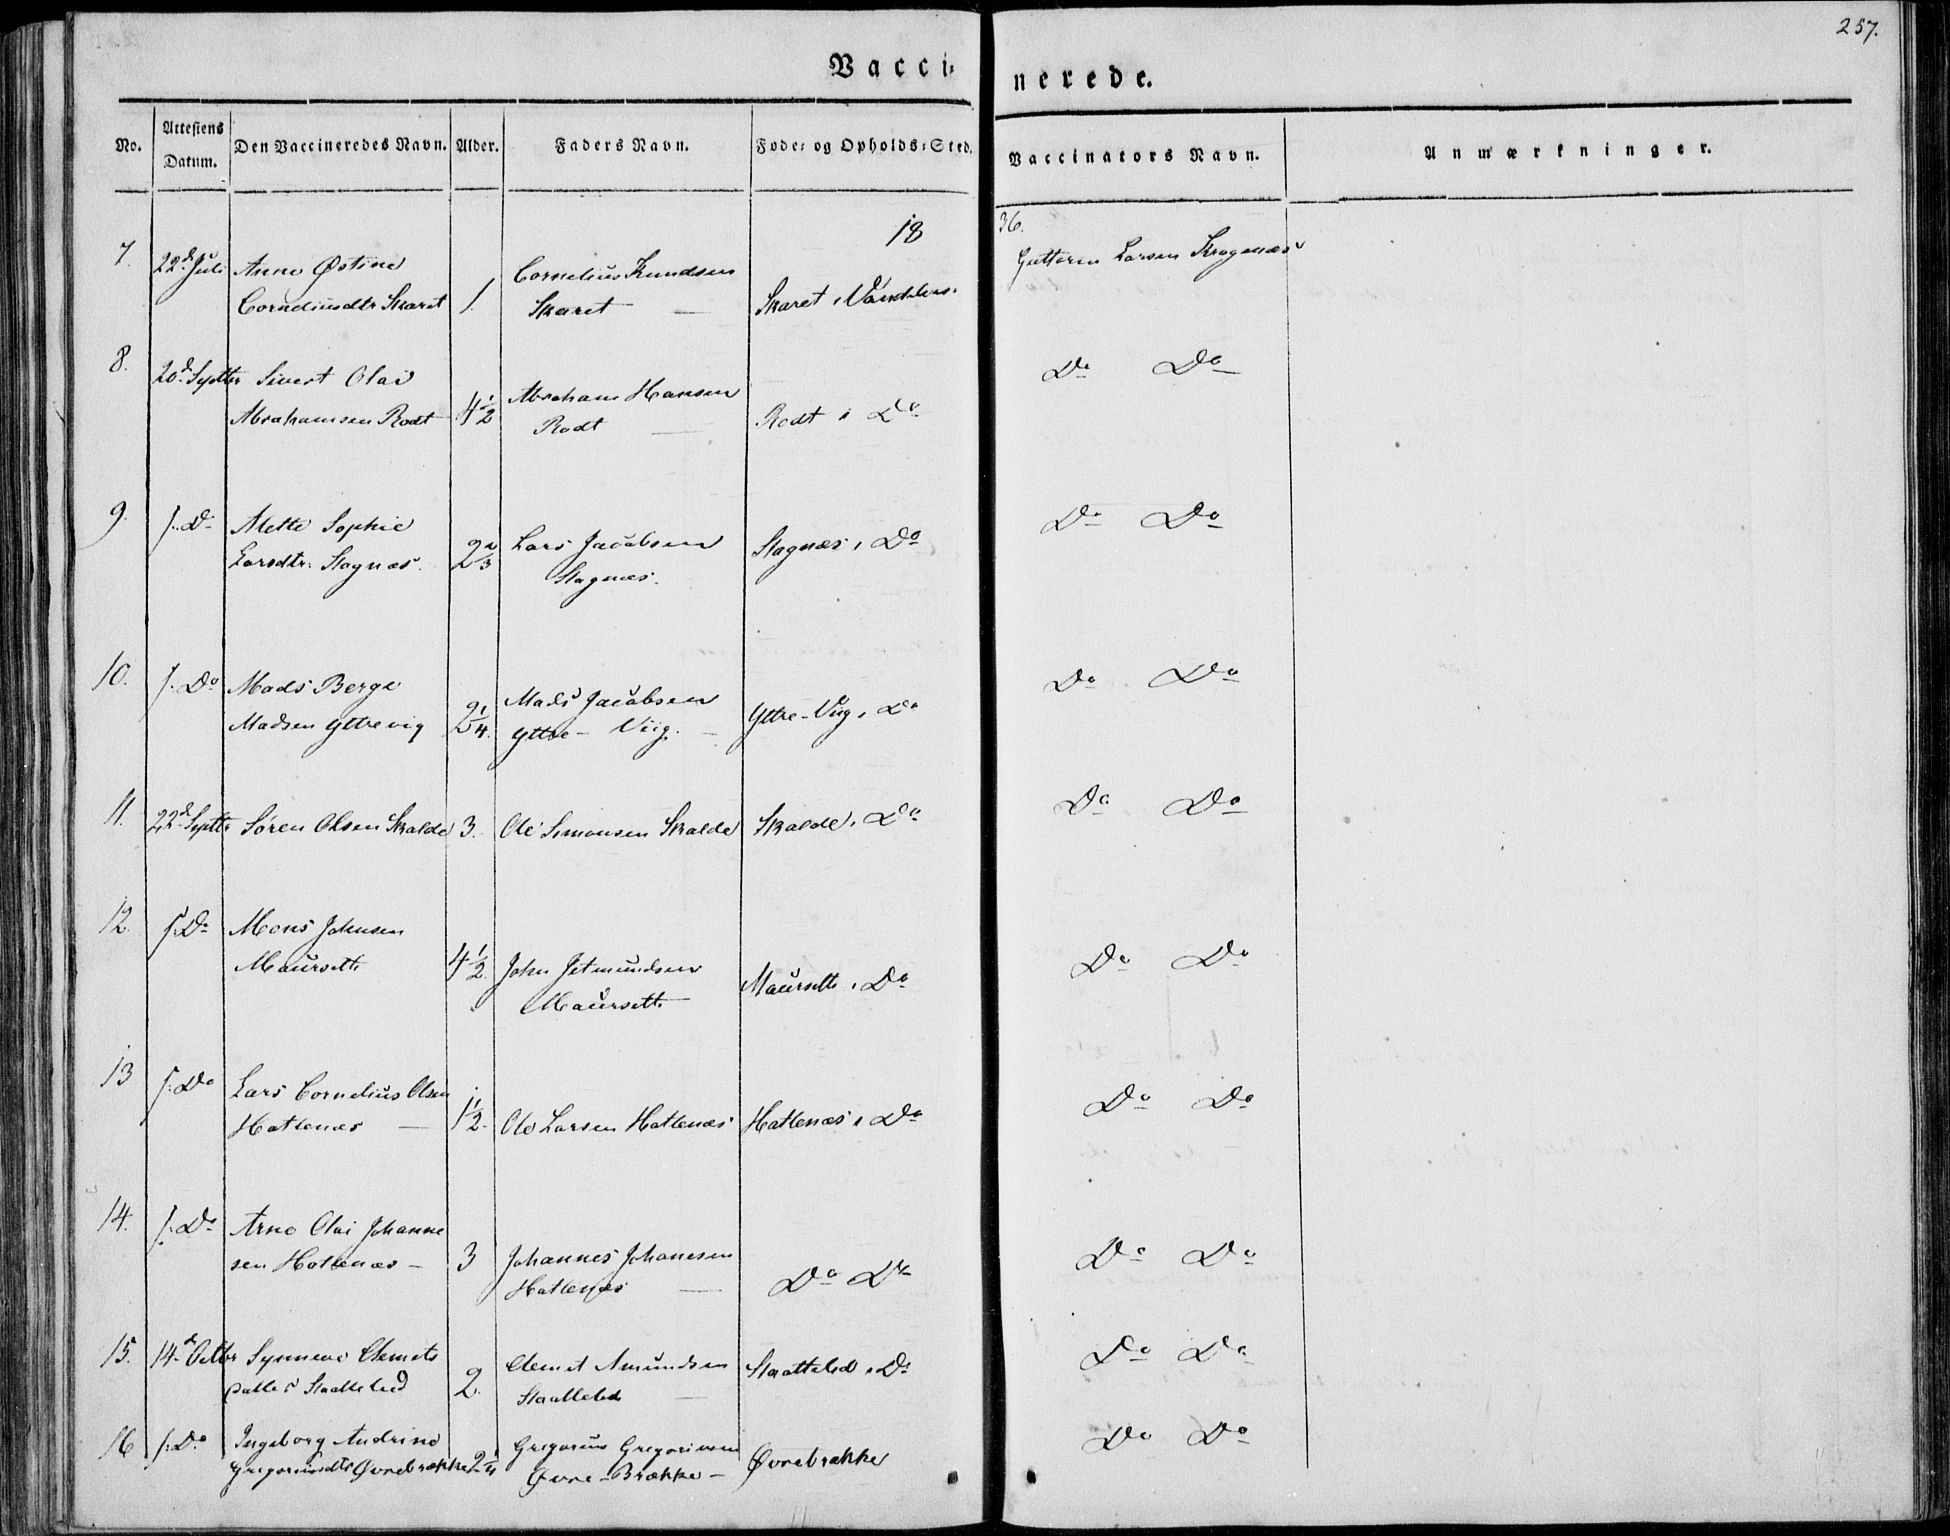 257.
Vacci-
nerede.
No.
Attestens Datum.
Den Vaccineredes Navn.
Alder.
Faders Navn.
Føde- og Opholds-Sted.
Vaccinators Navn.
Anmærkninger.
18
36.
7. 22d Juli Anne Østine
Corneliusdtr Skaret 1.
Cornelius Knudsen
Skaret —
Skaret i
Guttorm Larsen Kragenæs
8. 20d Septbr Sivert Olai
Abrahamsen Rødt 4 1/2
Abraham Hansen
Rødt —
Rødt i Do
Do Do
9. f. Do Mette Sophie
Larsdtr: Stagnæs. 2 2/3
Lars Jacobsen
Stagnæs.
Stagnæs i Do
Do Do
10. f. Do Mads Berge
Madsen Yttrevig 2 1/4.
Mads Jacobsen
Yttre- Viig. —
Yttre-Viig i Do
Do Do
11. 22d Septbr Søren Olsen Skalde 3.
Ole Simonsen Skalde
Skalde i Do
Do Do
12. f. Do Mons Johnsen
Maursette 4 1/2.
John Jetmundsen
Maursette
Maursette i Do
Do Do
13 f. Do Lars Cornelius Olsen
Hatlenæs — 1 1/2.
Ole Larsen Hatlenæs
Hatlenæs i Do
Do Do
14. f. Do Arne Olai Johanne
sen Hatlenæs — 3
Johannes Johanesen
Hatlenæs —
Do Do
Do Do
15. 14d Octbr Synneve Clemets
datter Staalleled 2.
Clemet Amundsen
Staalleled —
Staalleled i Do
Do Do
16 f. Do Ingeborg Andrine
Gregoriusdtr Øvrebrække 2 1/4
Gregorius Gregoriusen
Øvre-Brække —
Øvrebrække
Do Do